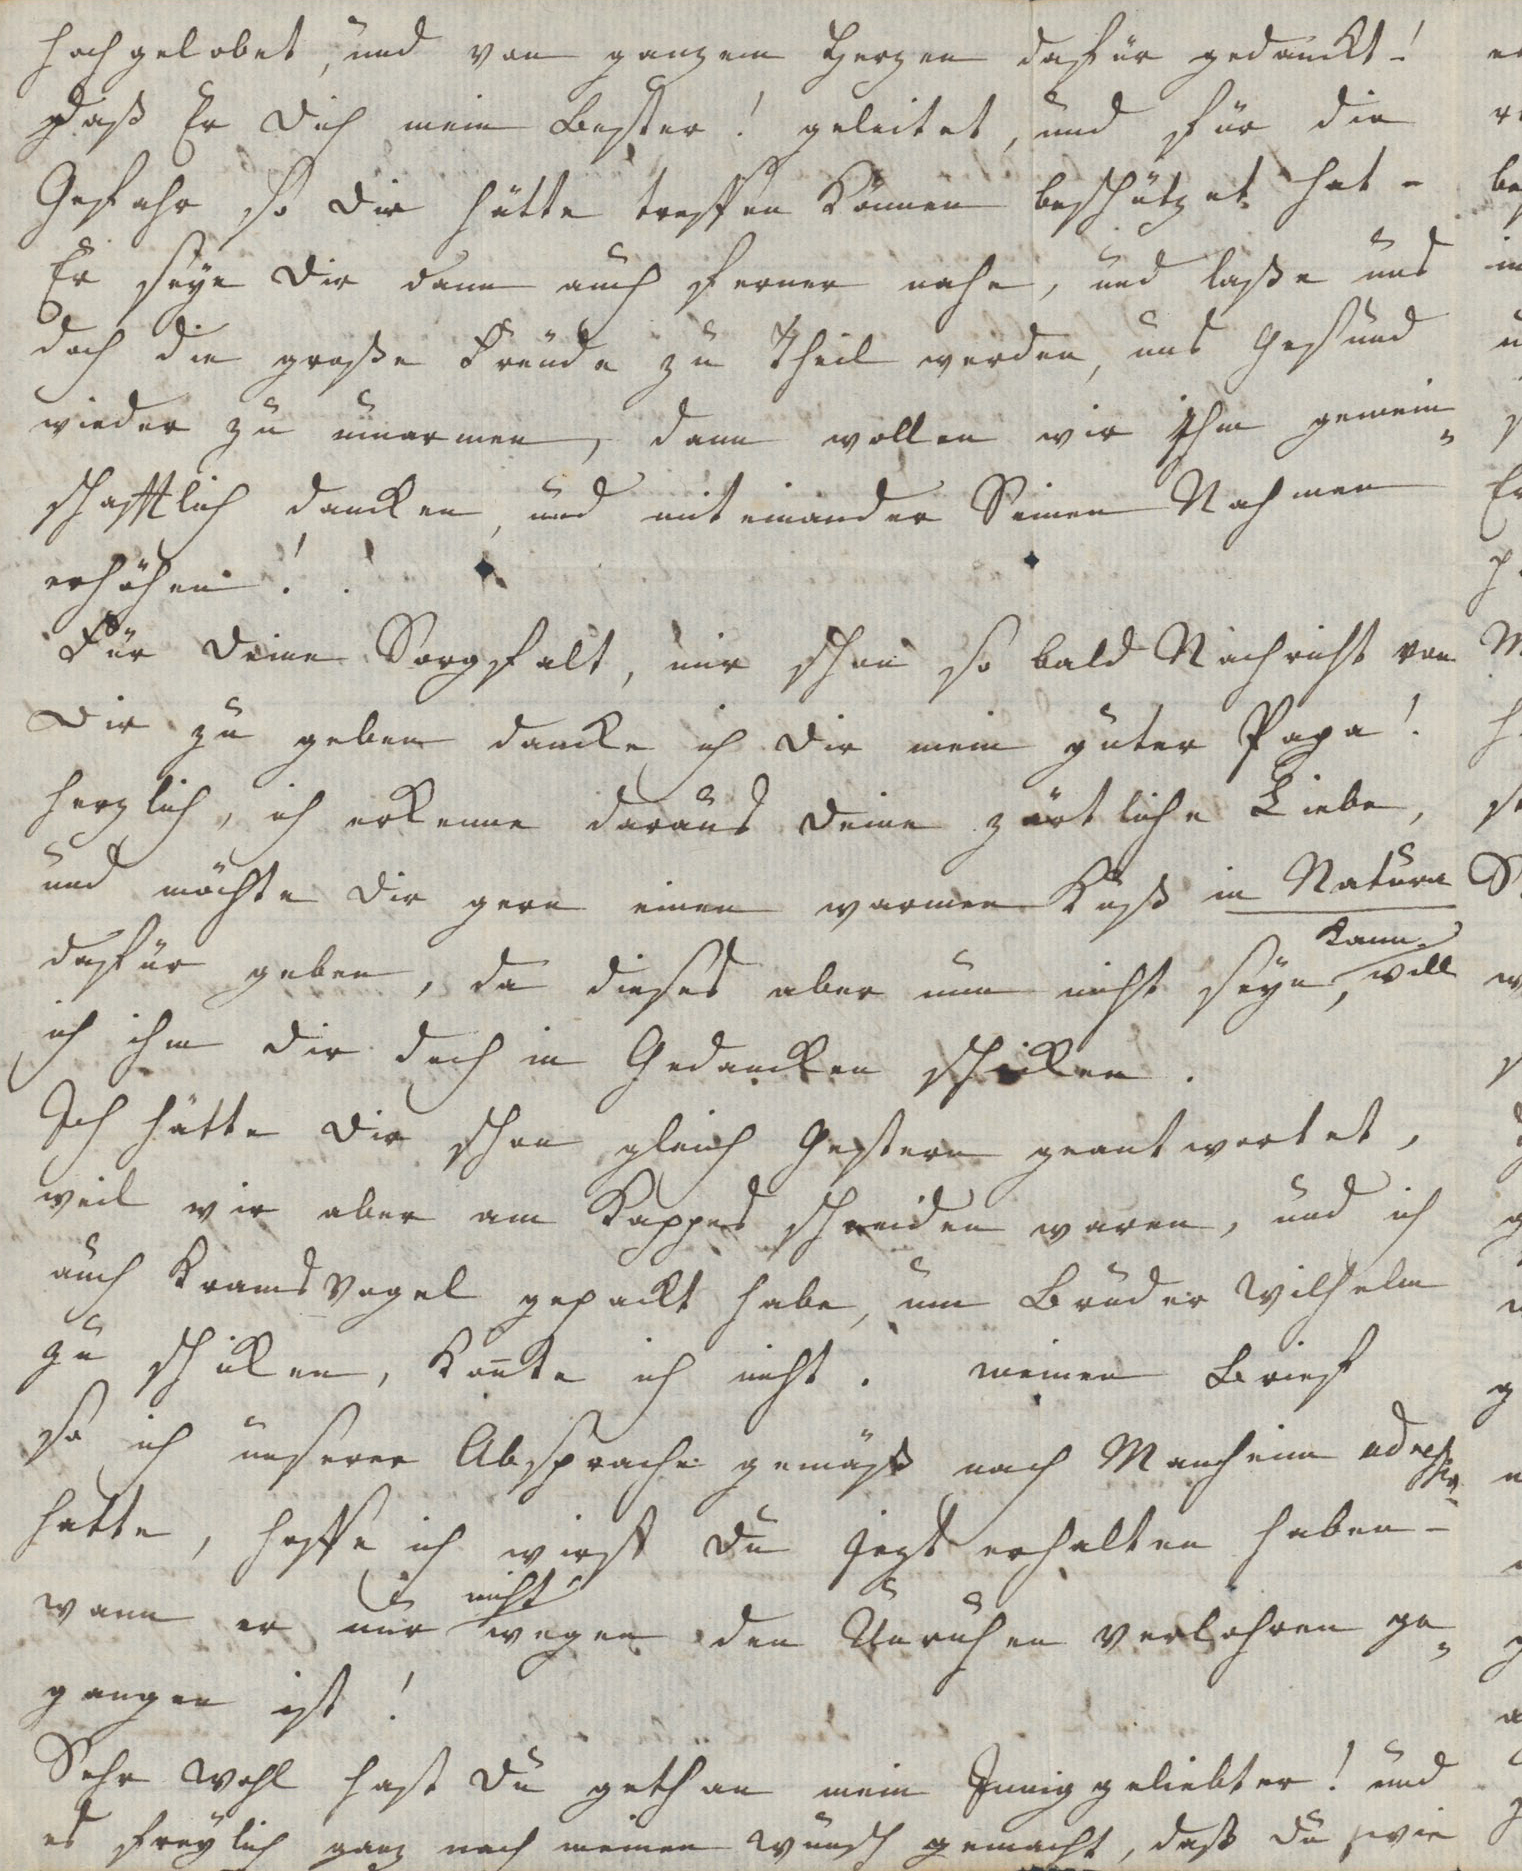 hochgelobet, und von ganzem Herzen dafür gedanckt!
daß Er Dich mein Bester! geleitet, und für die
Gefahr so Dir hätte treffen können beschützet hat –
Er seye Dir dann auch ferner nahe, und laße uns
doch die große Freude zu Theil werden, uns Gesund
wieder zu umarmen, dann wollen wir Ihm gemein„
schafftlich dancken, und miteinander Seinen Nahmen
erhöhen!
Für Deine Sorgfalt, mir schon so bald Nachricht von
Dir zu geben dancke ich Dir mein guter Papa!
herzlich, ich erkenne daraus Deine zärtliche Liebe,
und möchte Dir gern einen warmen Kuß in Natura
dafür geben, da dieses aber nun nicht seyn kann, will
ich ihm Dir doch in Gedancken schicken.
Ich hätte Dir schon gleich Gestern geantwortet,
weil wir aber am Kappes schneiden waren, und ich
auch Kramsvogel gepackt habe, um Bruder Wilhelm
zu schicken, konte ich nicht. meinen Brief
so ich unserer Absprache gemäß nach Manheim
hatte, hoffe ich wirst Du jezt erhalten haben –
wann er nur nicht wegen den Unruhen verlohren ge„
gangen ist!
Sehr wohl hast Du gethan mein Innig geliebter! und
es freylich ganz nach meinen Wunsch gemacht, daß Du wie